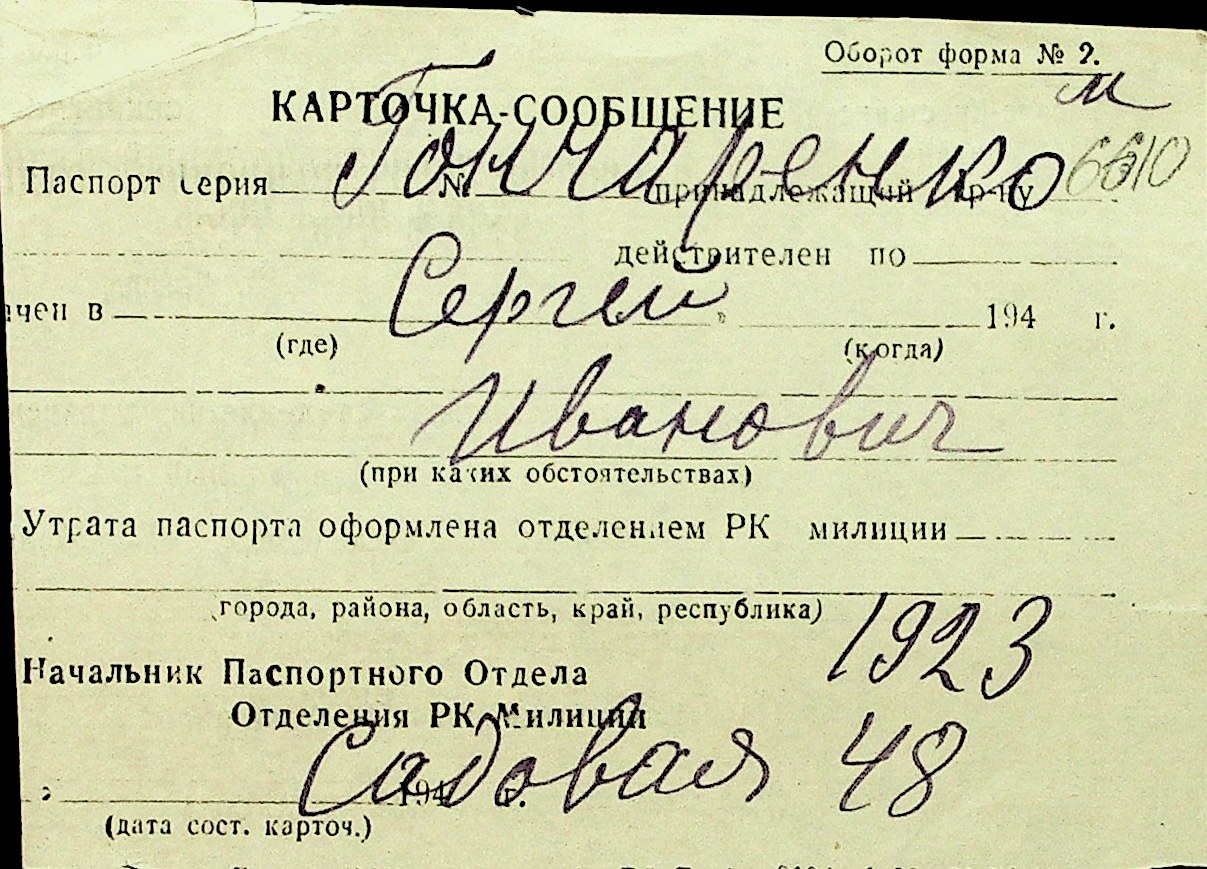 Оборот форма № 2.
м
КАРТОЧКА-СООБЩЕНИЕ
Гончаренко 6610
Паспорт серия № принадлежащий гр-ну
действителен по
Сергей
ачен в 194 г.
(где) (когда)
Иванович
(при каких обстоятельствах)
Утрата паспорта оформлена отделением РК милиции
города, района, область, край, республика)
1923
Начальник Паспортного Отдела
Отделения РК Милиции
Садовая 48
194 г.
(дата сост. карточ.)